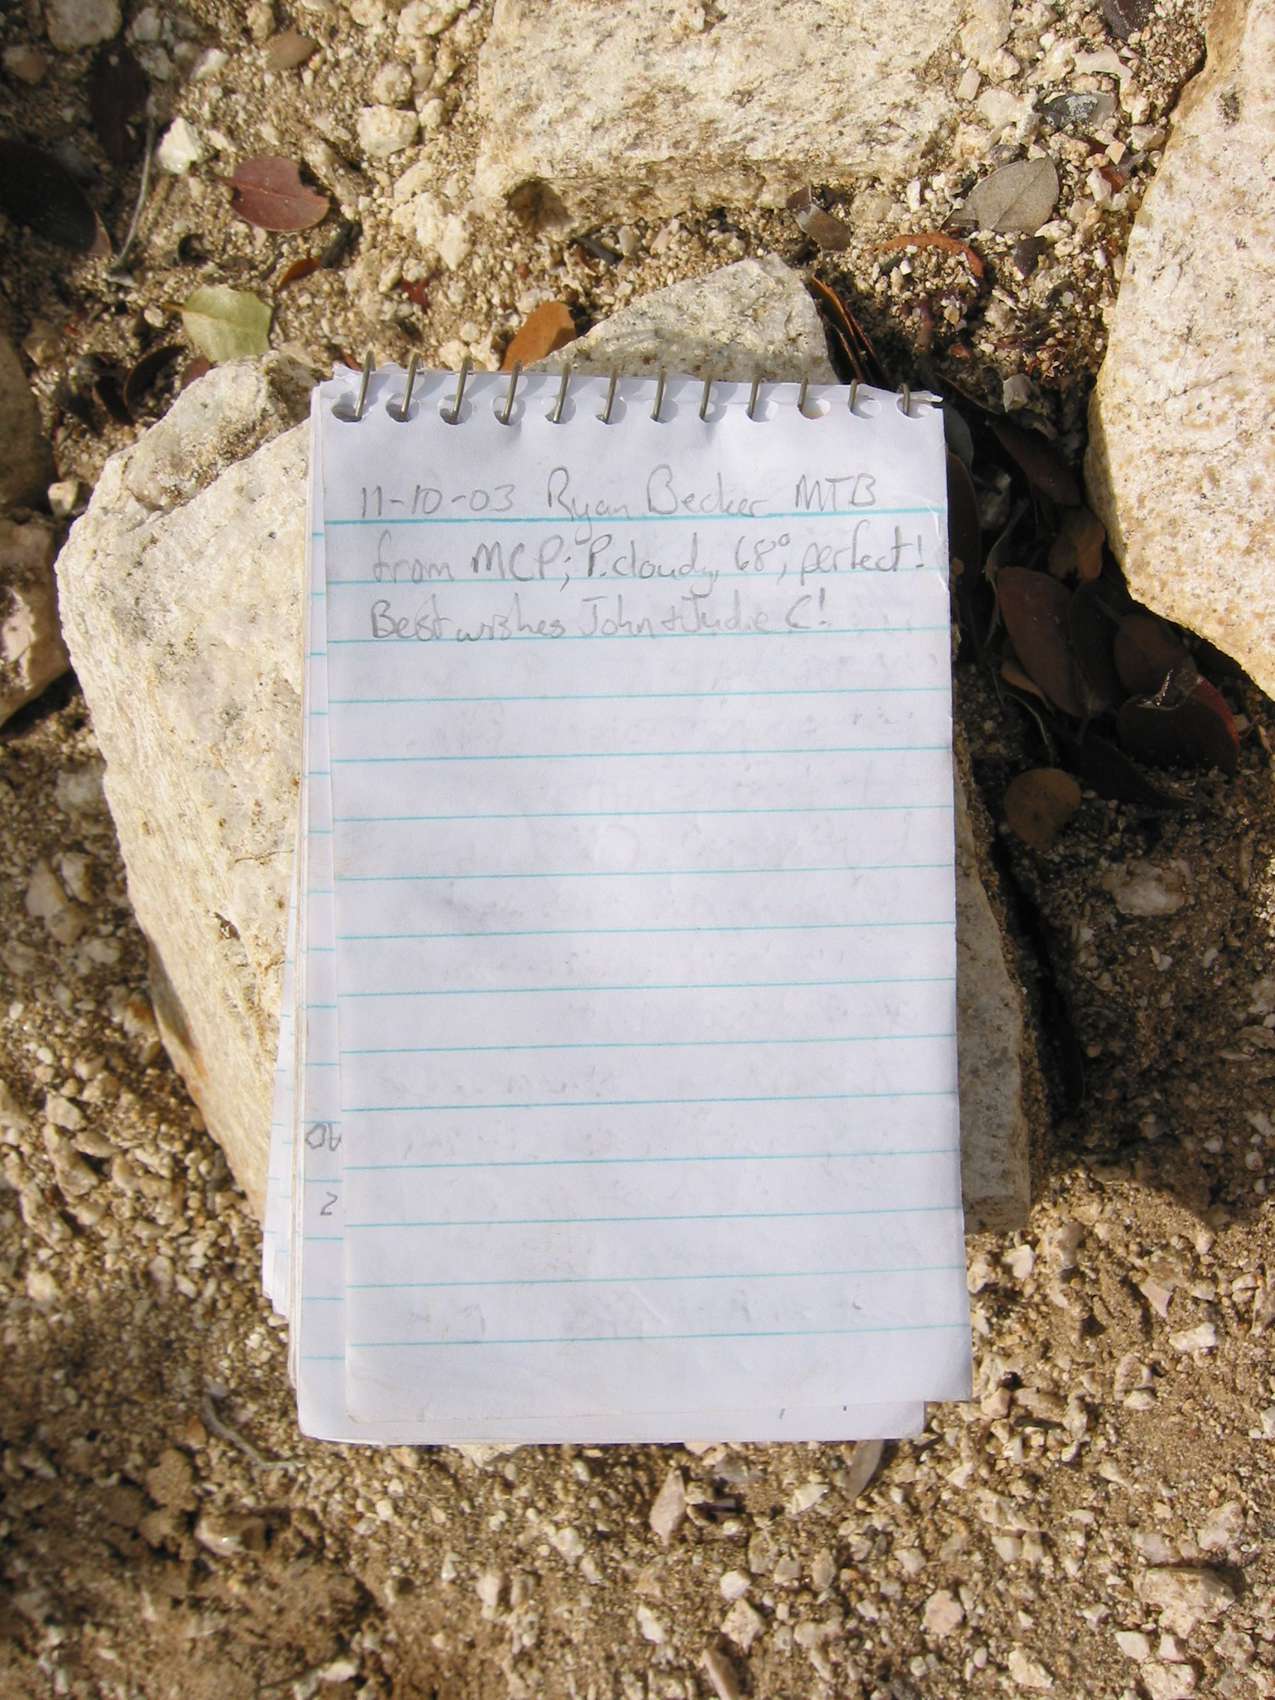 11-10-03 Ryan Becker MTB
from MCP; P. cloudy, 68°, perfect!
Best wishes John & Judie C!